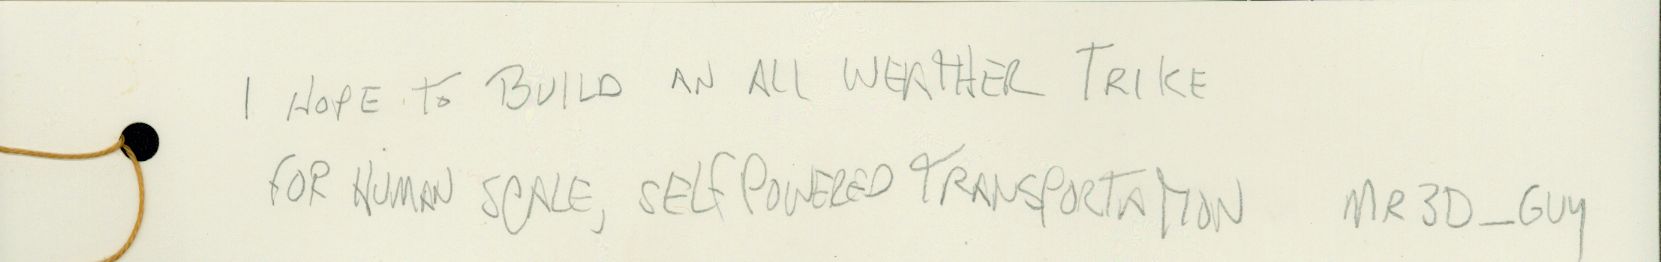 I HOPE TO BUILD AN ALL WEATHER TRIKE
FOR HUMAN SCALE, SELF POWERED TRANSPORTATION MR3D_GUY